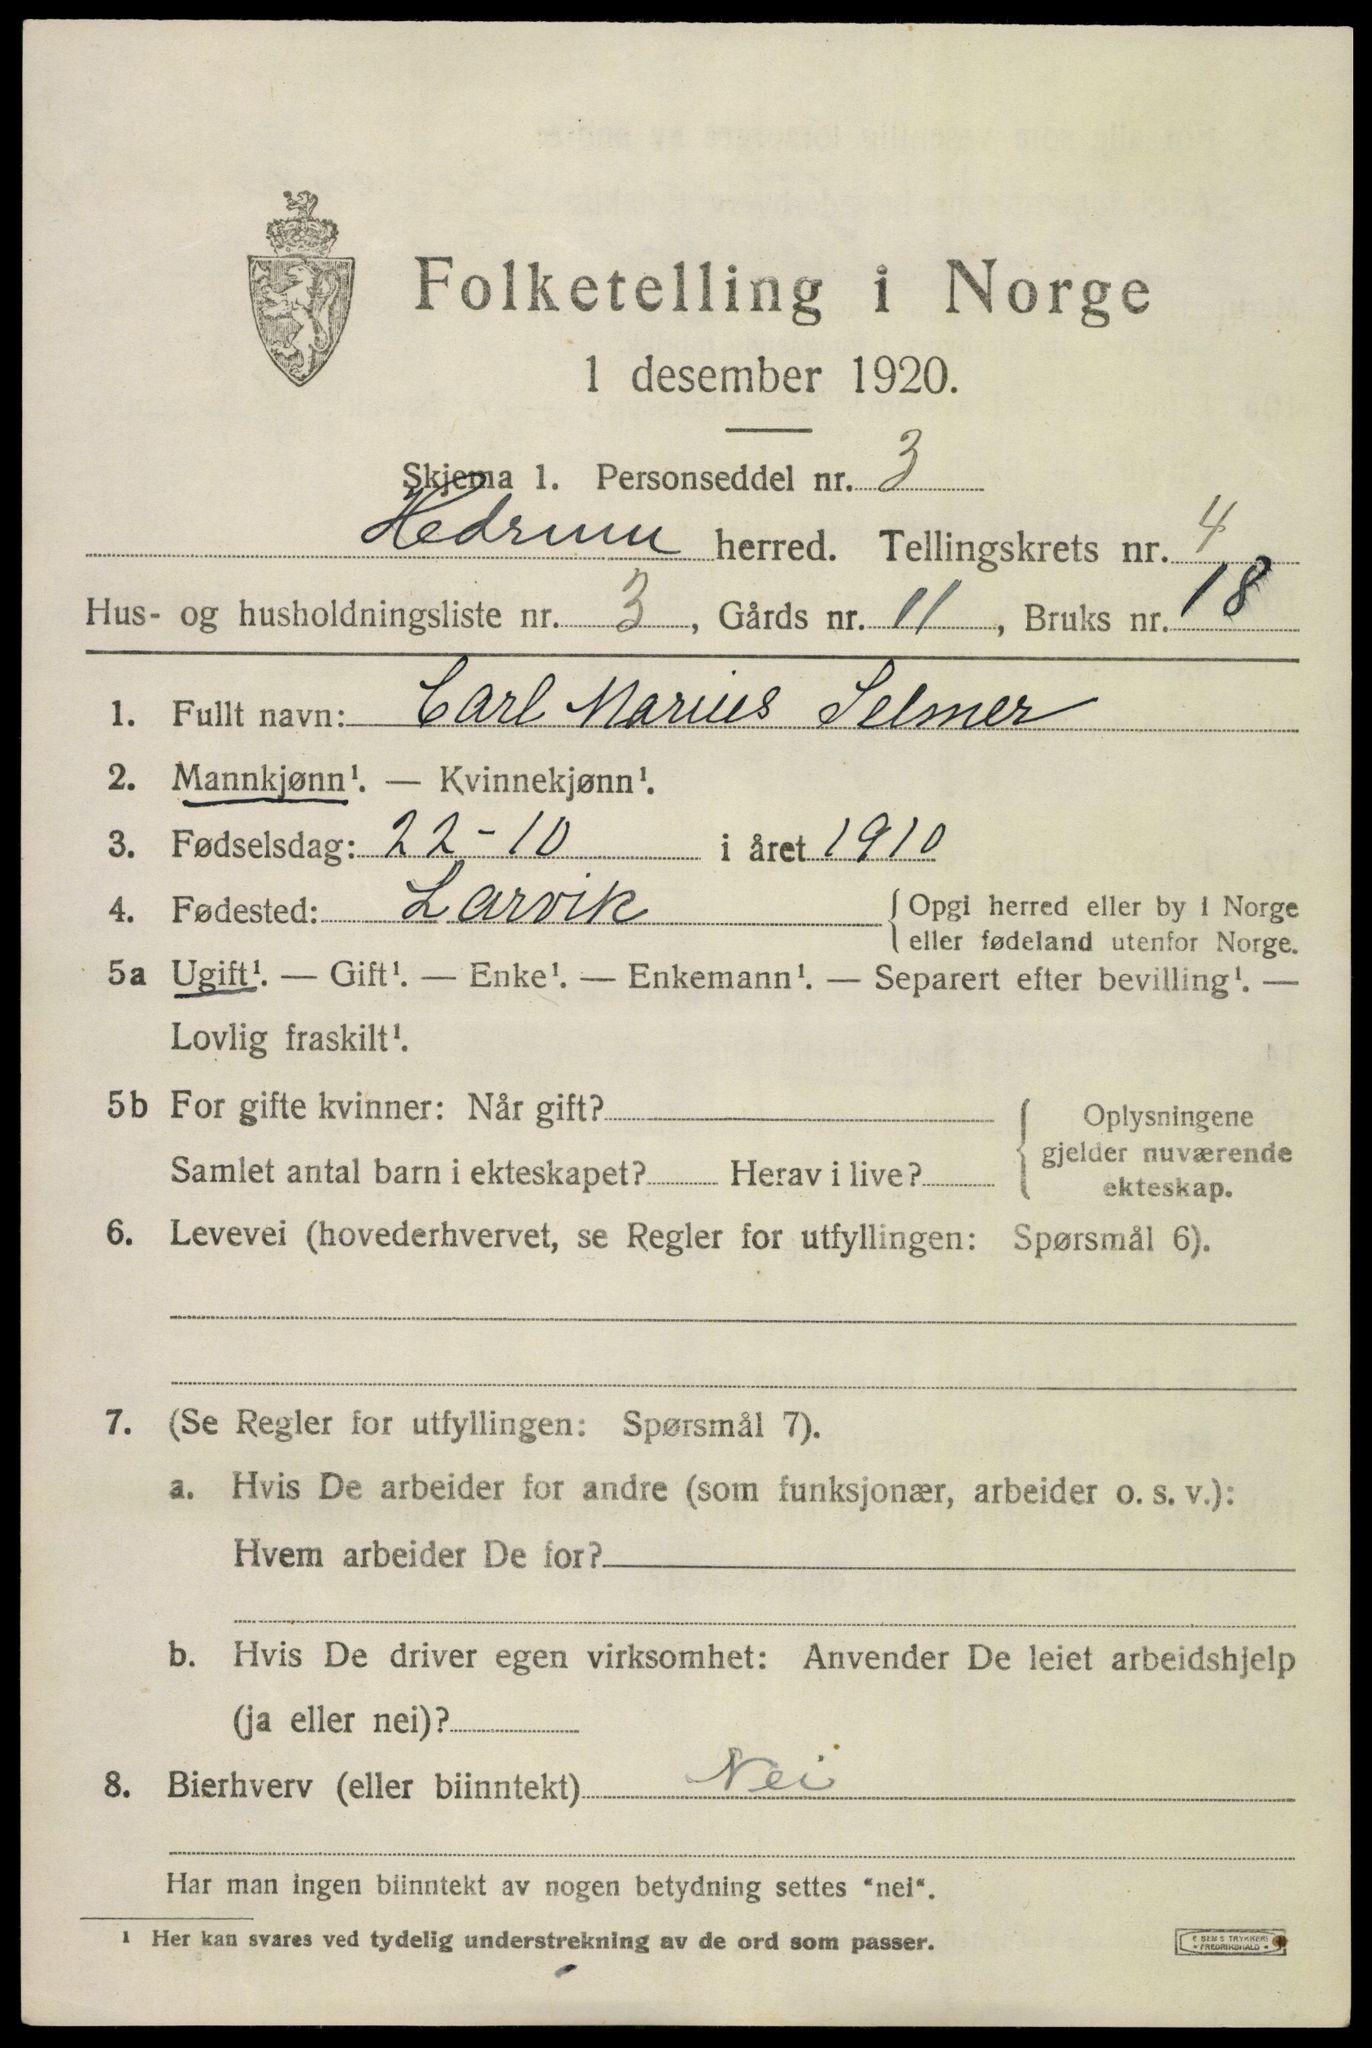 Folketelling i Norge
1 desember 1920.
Skjema 1. Personseddel nr. 3
Hedrum herred. Tellingskrets nr. 4
Hus- og husholdningsliste nr. 3, Gårds nr. 11, Bruks nr. 18
1. Fullt navn: Carl Marius Selmer
2. Mannkjønn¹. — Kvinnekjønn¹.
3. Fødselsdag: 22-10 i året 1910
4. Fødested: Larvik { Opgi herred eller by i Norge
eller fødeland utenfor Norge.
5a Ugift¹. — Gift¹. — Enke¹. — Enkemann¹. — Separert efter bevilling¹. —
Lovlig fraskilt¹.
5b For gifte kvinner: Når gift?
Samlet antal barn i ekteskapet? Herav i live?
{ Oplysningene
gjelder nuværende
ekteskap.
6. Levevei (hovederhvervet, se Regler for utfyllingen: Spørsmål 6).
7. (Se Regler for utfyllingen: Spørsmål 7).
a. Hvis De arbeider for andre (som funksjonær, arbeider o. s. v.):
Hvem arbeider De for?
b. Hvis De driver egen virksomhet: Anvender De leiet arbeidshjelp
(ja eller nei)?
8. Bierhverv (eller biinntekt) Nei
Har man ingen biinntekt av nogen betydning settes "nei".
¹ Her kan svares ved tydelig understrekning av de ord som passer.
E SEMS TRYKKERI
* FREDRIKSHALD *